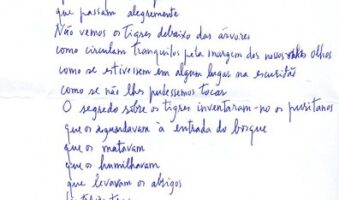 que passam alegremente
Não vemos os tigres debaixo das árvores
como circulam tranquilos pela margem dos nossos olhos
como se estivessem em algum lugar na escuridão
como se não lhes pudessemos tocar
O segredo sobre os tigres inventaram-no os puritanos
que os aguardavam à entrada do bosque
que os matavam
que os humilhavam
que levavam os abrigos